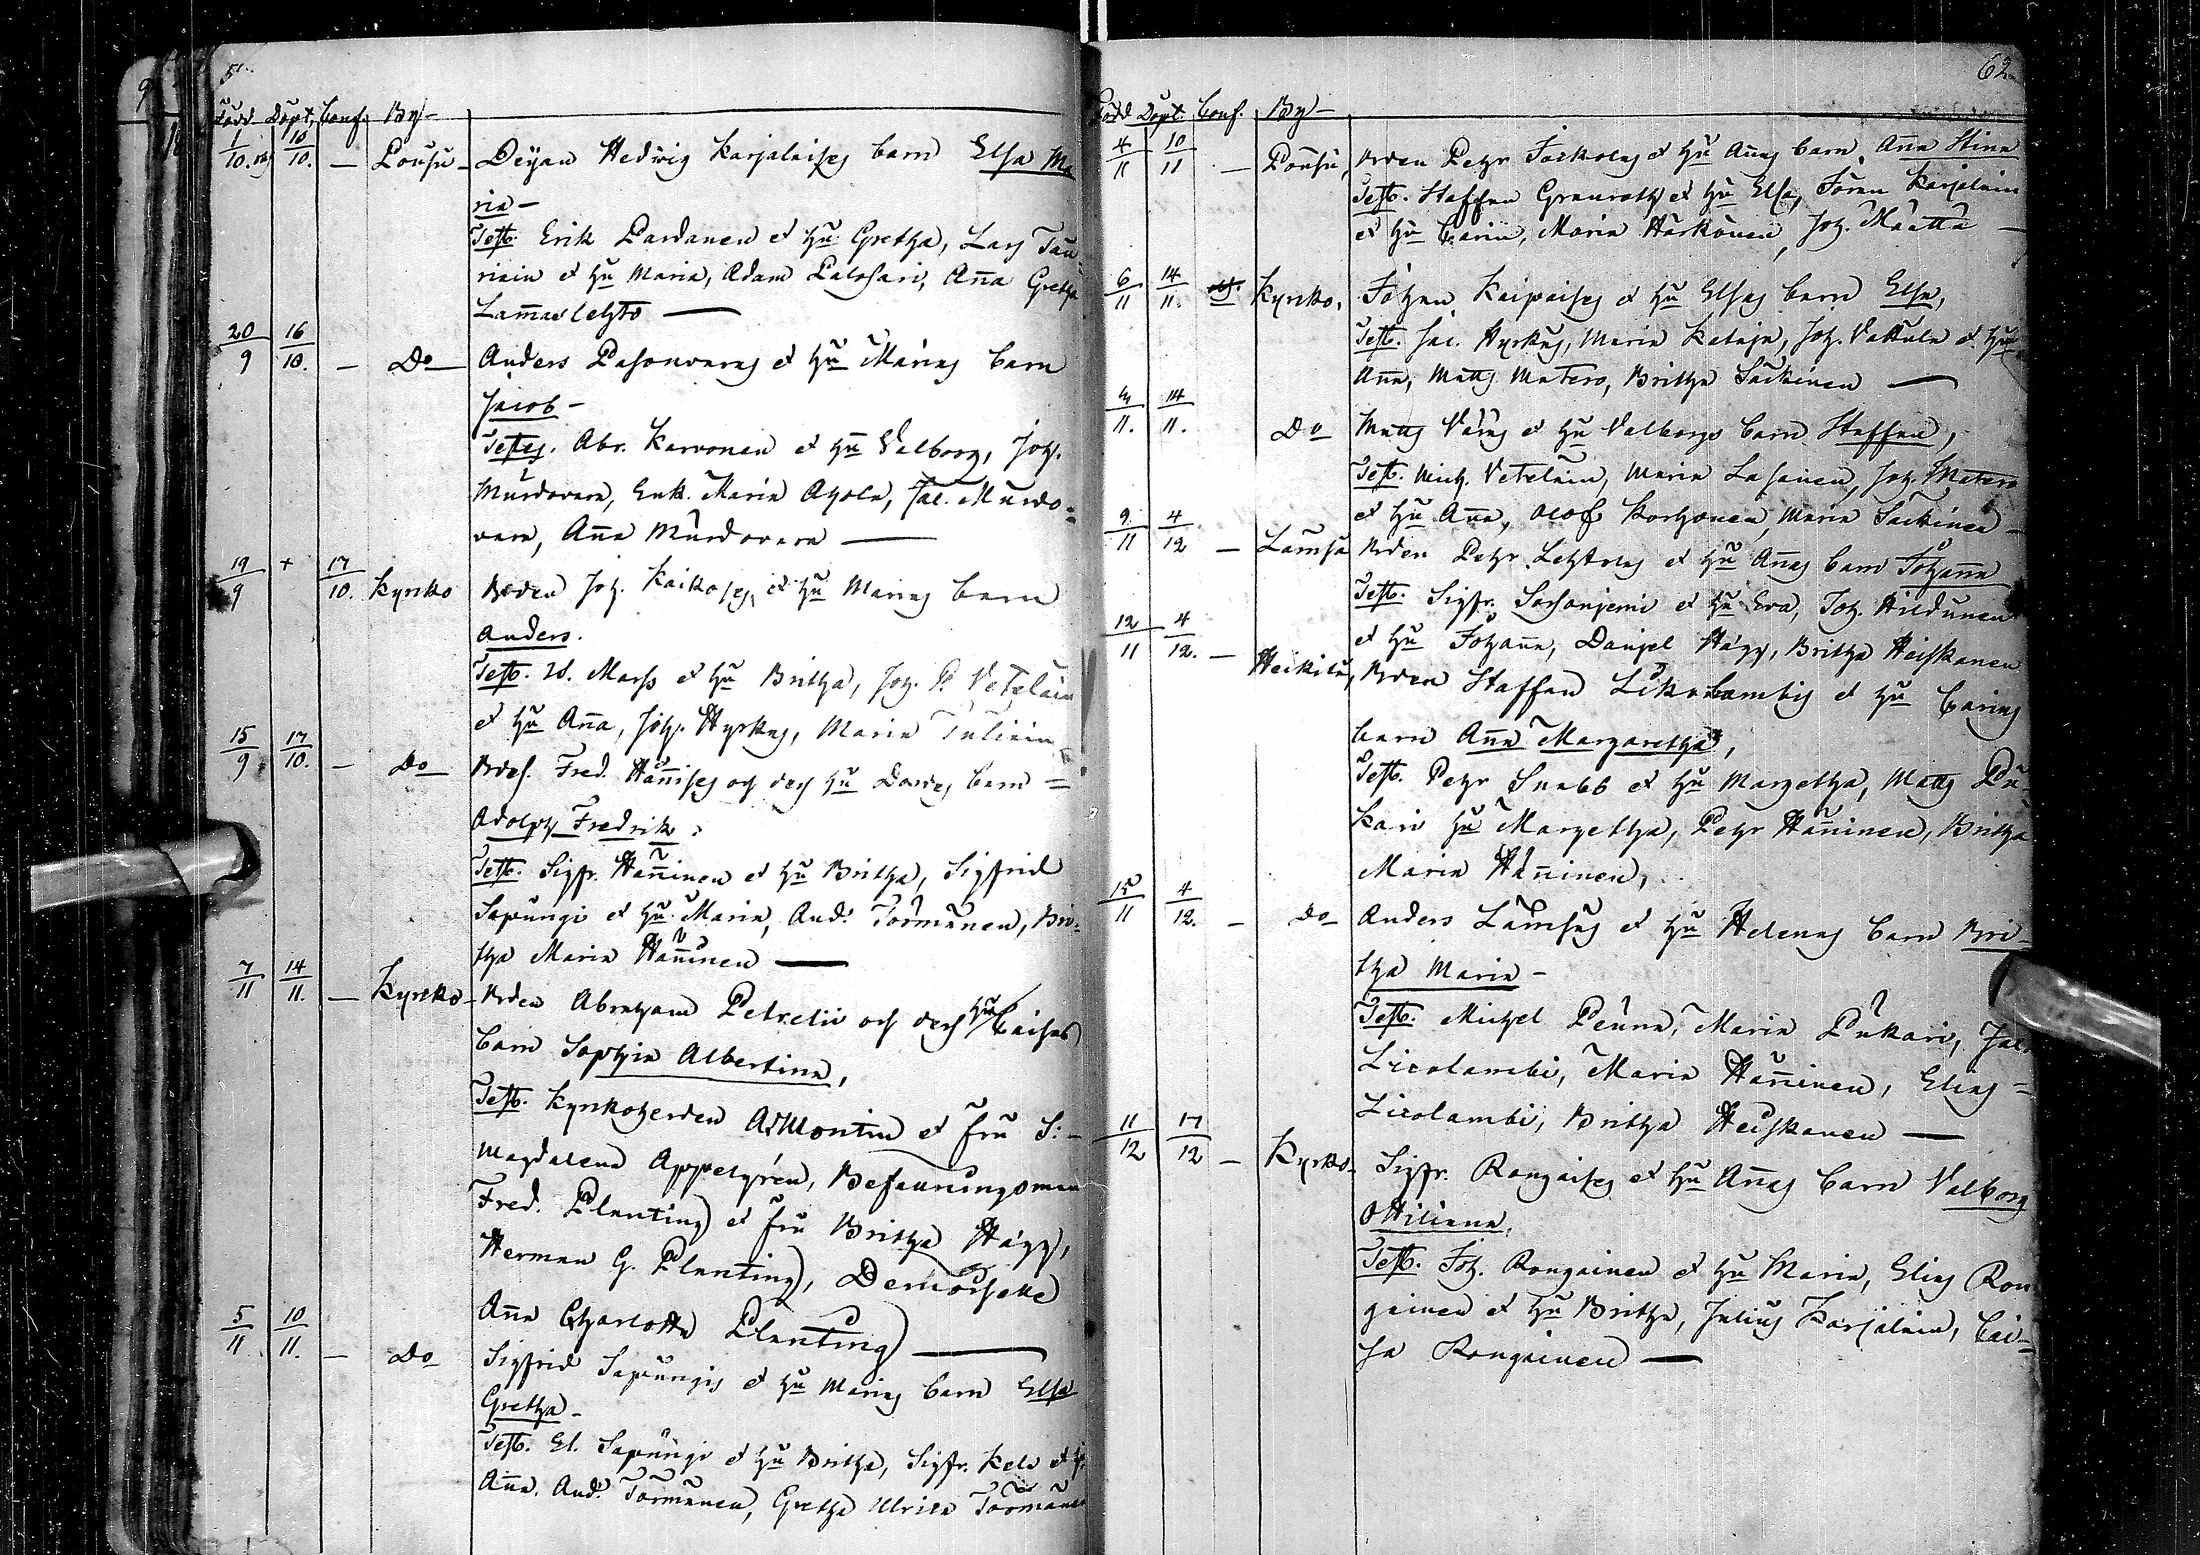 5
Född Döpt. Conf. By
1/10 10/10. — Pousu — Deÿan Hedvig Karjalaises barn Elsa Ma
ria —
Test. Erik Pardanen et hu Gretha, Lars Tau
riain et hu Maria, Adam Palosari, Anna Gretha
Lammaslehto —
20/9 16/10. — Do — Anders Pasonvaras et hu Marias barn
Jacob —
Testes. Abr. Karvonen et hu Valborg, Joh.
Murdovara, Enk. Maria Ahola, Jac. Murdo=
vara, Anna Murdovara —
19/9 + 17/10. Kyrko Boden Joh. Kaikoses et hu Marias barn
Anders.
Test. W. Marss et hu Britha, Joh. P. Vetelain
et hu Anna, Joh. Hyrkas, Maria Juliain
15/9 17/10. — Do Fred. Hännises och des hu barn =
Adolph Fredrik.
Test. Sigfr. Hänninen et hu Britha, Sigfrid
Sapungi et hu Maria, And. Törmänen, Bri=
tha Maria Hänninen —
7/11 14/11. — Kyrko Abraham Petrelii och des hu Caisas
barn Sophia Albertina,
Test. Kyrkoherden A. Montin et fru S: —
Magdalena Appelgren, Befallningsman
Fred. Planting et fru Britha Hägg,
Herman G. Planting, Demoiselle
Anna Charlotta Planting —
5/11 10/11. — Do Sigfrid Sapungis et hu Marias barn Elsa
Gretha —
Test. El. Sapungi et hu Britha, Sigfr. Kela et h
Anna. And. Törmänen, Gretha Ulrica Törmänen
62
Född Döpt. Conf. By
4/11 10/11 — Pousu, Petr Jaskolas et hu Annas barn Anna Stina
Test. Staffan Granroth et hu Elsa, Jöran Karjalain
et hu Carin, Maria Härkönen, Joh. Määttä —
6/11 14/11. Kyrko, Johan Kaipaises et hu Elsas barn Elsa,
Test. Jac. Hyrkas, Maria Kataja, Joh. Vattula et hu
Anna, Matts Matero, Britha Säckinen —
4/11. 14/11. Do Matts Väräs et hu Valborgs barn Staffan,
Test. Mich. Vetelain, Maria Lasanen, Joh. Matero
et hu Anna, Olof Korhonen, Maria Säckinen —
9/11 4/12 — Lämsä Petr Lehtolas et hu Annas barn Johanna
Test. Sigfr. Sarsonjemi et hu Eva, Joh. Hildunen
et hu Johanna, Daniel Hägg, Britha Heiskanen
12/11 4/12. — Heikilä, Staffan Likolambis et hu Carins
barn Anna Margaretha,
Test. Petr Snabb et hu Margetha, Matts Pu
kari hu Margetha, Petr Hänninen, Britha
Maria Hänninen,
15/11 4/12. — Do Anders Lämsäs et hu Helenas barn Bri
tha Maria —
Test. Michel Peuna, Maria Pukari, Jac.
Licolambi, Maria Hänninen, Elias =
Licolambi, Britha Heiskanen —
11/12 17/12 — Kyrko Sigfr. Rongaises et hu Annas barn Valborg
Ottiliana.
Test. Joh. Rongainen et hu Maria, Elias Ron
gainen et hu Britha, Julius Karjalain, Cai=
sa Rongainen —